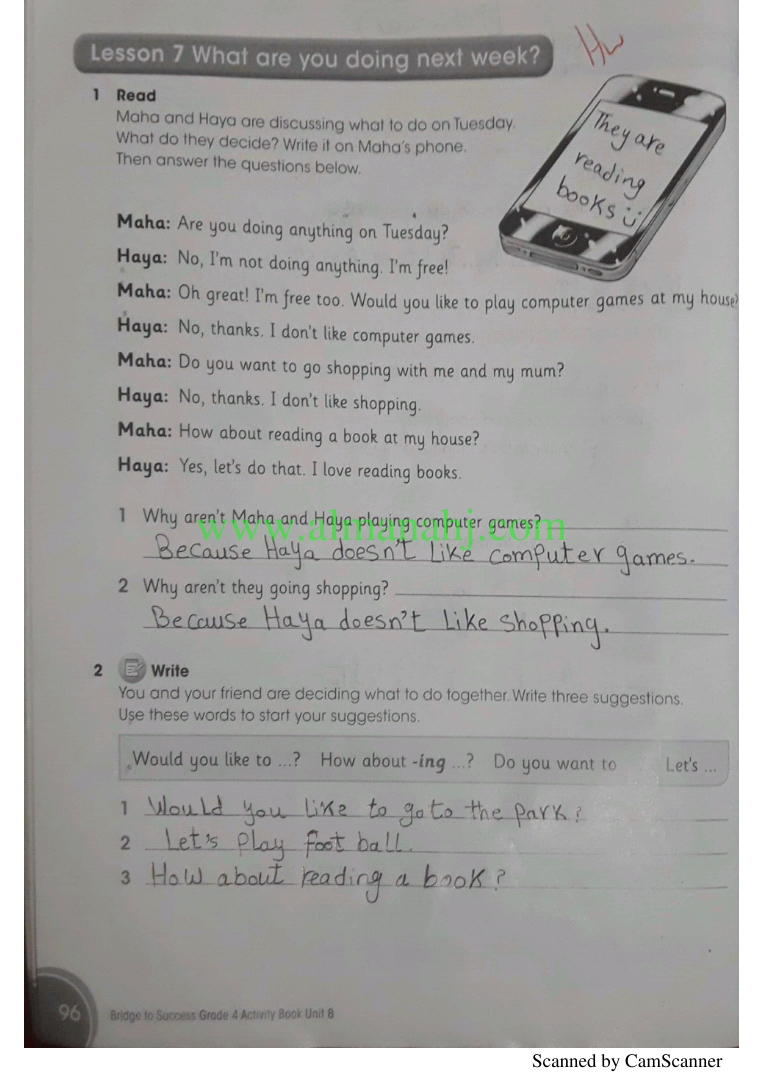 Lesson 7 What are you doing next week?
Hw
1 Read
Maha and Haya are discussing what to do on Tuesday.
What do they decide? Write it on Maha's phone.
Then answer the questions below.
They are
reading
books
Maha: Are you doing anything on Tuesday?
Haya: No, I'm not doing anything. I'm free!
Maha: Oh great! I'm free too. Would you like to play computer games at my house?
Haya: No, thanks. I don't like computer games.
Maha: Do you want to go shopping with me and my mum?
Haya: No, thanks. I don't like shopping.
Maha: How about reading a book at my house?
Haya: Yes, let's do that. I love reading books.
1 Why aren't Maha and Haya playing computer games?
www.almanahj.com
Because Haya doesn't like computer games.
2 Why aren't they going shopping?
Because Haya doesn't like shopping.
2 Write
You and your friend are deciding what to do together. Write three suggestions.
Use these words to start your suggestions.
Would you like to ...? How about -ing ...? Do you want to Let's ...
1 Would you like to go to the park?
2 Let's play foot ball.
3 How about reading a book?
96 Bridge to Success Grade 4 Activity Book Unit 8
Scanned by CamScanner